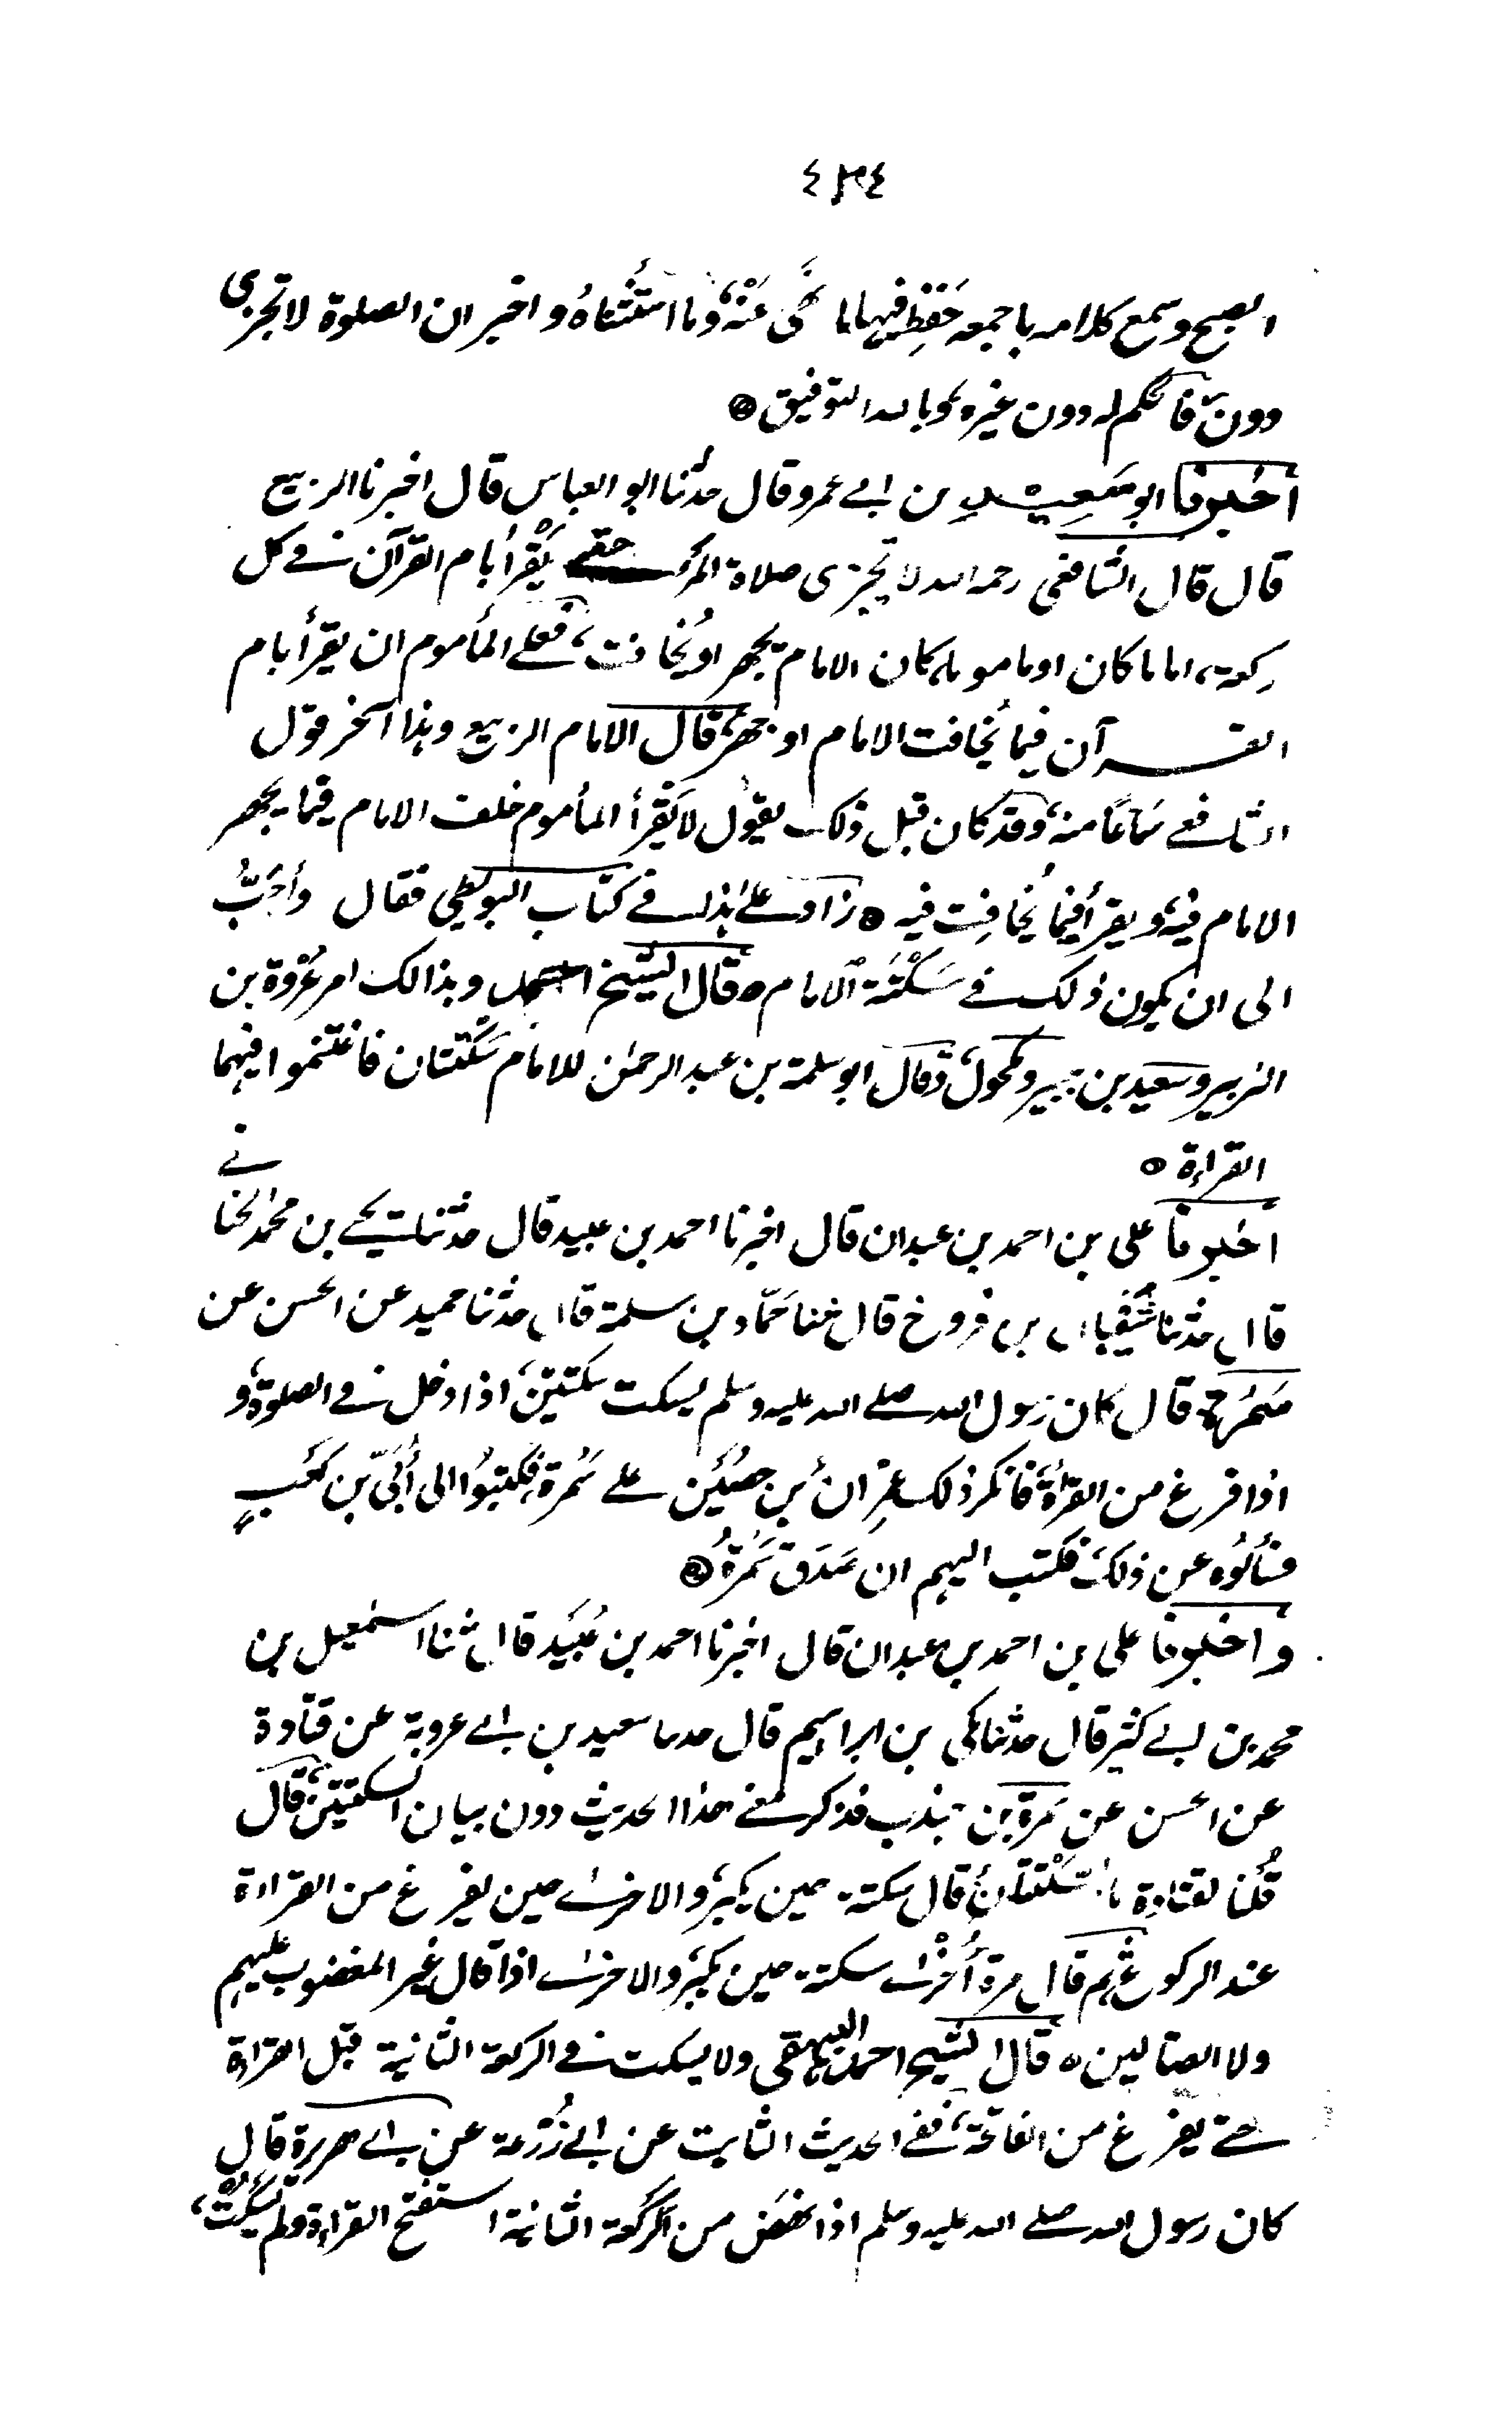 ٤٣٤
الصبح وسمع كلامه باجمعه حفظ فيها ما نهى عنه، وما استثناهُ و اخبر ان الصلوة لا تجزى
دونه فالحكم له دون غيره وبالله التوفيق
أخبرنا ابو سَعِيد بن ابى عمرو قال حدثنا ابو العباس قال اخبرنا الربيع
قال قال الشافعى رحمه الله لا تجزى صلاة المرء حتى يَقْرأ بام القرآن فى كل
ركعة، اماما كان او ماموما، كان الامام يجهر او يُخافت، فعلى المأموم ان يقرأ بام
القرآن فيما يُخافت الامام او جهر، قال الامام الربيع وهذا آخر قول
الشافعى سَماعًا منه، وقد كان قبل ذلك يقول لا يَقْرأ المأموم خلف الامام فيما يجهر
الامام فيه، ويقرأ فيما يُخافِت فيه ٥ زاد على هذا فى كتاب البويطى فقال وأحَبُّ
الى ان يكون ذلك فى سَكْتَة الامام ٥ قال الشيخ احمد وبذالك امر عُرْوَة بن
الزبير وسعيد بن جبير ومكحول، وقال ابو سلمة بن عبد الرحمٰن للامام سَكْتتان فاغتنموا فيهما
القراءة ٥
أخبرنا على بن احمد بن عبدان قال اخبرنا احمد بن عبيد قال حدثنا يحيى بن محمد الحنائى
قال حدثنا شَيْبان بن فروخ قال ثنا حَمّاد بن سلمة قال حدثنا حميد عن الحسن عن
سَمُرة قال كان رسول الله صلى الله عليه وسلم يسكت سكتتين، اذا دخل فى الصلوة، و
اذا فرغ من القراءة، فانكر ذلك عِمْران بن حصَين على سَمُرة، فكتبوا الى أُبَىّ بن كعْبٍ
فسألُوه عن ذلك، فكتب اليهم ان صَدَق سَمُرةُ
وأخبرنا على بن احمد بن عبدان قال اخبرنا احمد بن عُبَيد قال ثنا اسمٰعيل بن
محمد بن ابى كثير قال حدثنا مكى بن ابراهيم قال حدثنا سعيد بن ابى عروبة عن قتادة
عن الحسن عن سمرة بن جندب فذكر معنى هذا الحديث دون بيان السكتتين، قال
قُلنا لقتادة ما السَّكْتتان، قال سكتة حين يكبر، والاخرى حين يفرغ من القراءة
عند الركوع ثم قال مرة أُخْرٰى سكتة حين يكبر، والاخرى اذا قال غير المغضوب عليهم
ولا الضالين ٥ قال الشيخ احمد البيهقى ولا يسكت فى الركعة الثانية قبل القراءة
حتى يفرغ من الفاتحة، ففى الحديث الثابت عن ابى زُرْعة عن ابى هريرة قال
كان رسول الله صلى الله عليه وسلم اذا نهَضَ من الرَكْعة الثانية استفتح القراءة ولم يَسْكُتْ،